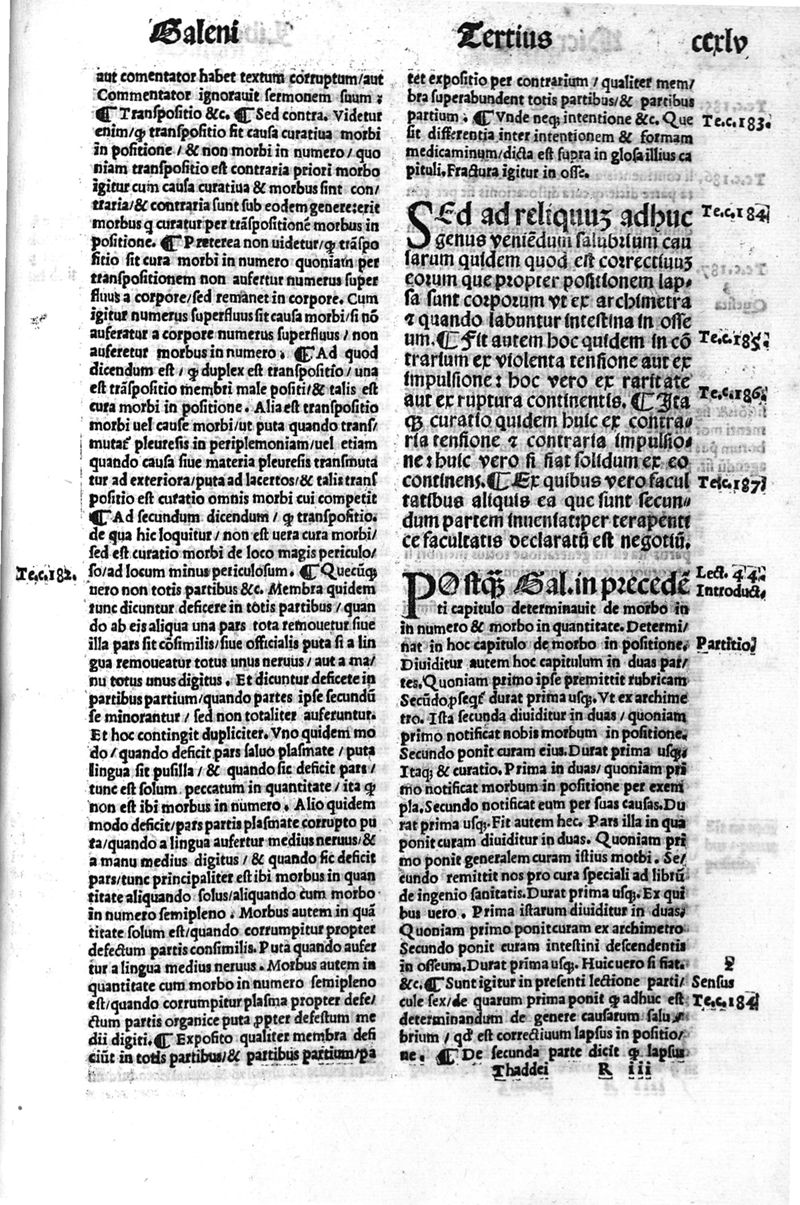 Galeni
Tertius
ccxlv
aut comentator habet textum corruptum/aut
Commentator ignorauit sermonem suum :
¶ Transpositio &c. ¶ Sed contra. Videtur
enim/ꝙ transpositio sit causa curatiua morbi
in positione / & non morbi in numero / quo
niam transpositio est contraria priori morbo
igitur cum causa curatiua & morbus sint con/
traria/& contraria sunt sub eodem genere:erit
morbus q curatur per trãspositionẽ morbus in
positione. ¶ Preterea non uidetur/ꝙ trãspo
sitio sit cura morbi in numero quoniam per
transpositionem non aufertur numerus super
fluus a corpore/sed remanet in corpore. Cum
igitur numerus superfluus sit causa morbi/si nõ
auferatur a corpore numerus superfluus / non
auferetur morbus in numero . ¶ Ad quod
dicendum est / ꝙ duplex est transpositio / una
est trãspositio membri male positi/& talis est
cura morbi in positione. Alia est transpositio
morbi uel cause morbi/ut puta quando trans/
mutat pleuresis in periplemoniam/uel etiam
quando causa siue materia pleuresis transmuta
tur ad exteriora/puta ad lacertos/& talis trans
positio est curatio omnis morbi cui competit
¶ Ad secundum dicendum / ꝙ transpositio.
de qua hic loquitur / non est uera cura morbi/
sed est curatio morbi de loco magis periculo/
Te.c.182. so/ad locum minus periculosum. ¶ Quecũqȝ
uero non totis partibus &c. Membra quidem
tunc dicuntur deficere in totis partibus / quan
do ab eis aliqua una pars tota remouetur siue
illa pars sit cõsimilis/siue officialis puta si a lin
gua remoueatur totus unus neruus / aut a ma/
nu totus unus digitus . Et dicuntur deficere in
partibus partium/quando partes ipse secundũ
se minorantur / sed non totaliter auferuntur.
Et hoc contingit dupliciter. Vno quidem mo
do / quando deficit pars saluo plasmate / puta
lingua sit pusilla / & quando sic deficit pars /
tunc est solum peccatum in quantitate / ita ꝙ
non est ibi morbus in numero . Alio quidem
modo deficit/pars partis plasmate corrupto pu
ta/quando a lingua aufertur medius neruus/&
a manu medius digitus / & quando sic deficit
pars/tunc principaliter est ibi morbus in quan
titate aliquando solus/aliquando cum morbo
in numero semipleno . Morbus autem in quã
titate solum est/quando corrumpitur propter
defectum partis consimilis. Puta quando aufer
tur a lingua medius neruus . Morbus autem in
quantitate cum morbo in numero semipleno
est/quando corrumpitur plasma propter defe/
ctum partis organice puta ꝓpter defectum me
dii digiti. ¶ Exposito qualiter membra defi
ciũt in totis partibus/& partibus partium/pa
tet expositio per contrarium / qualiter mem/
bra superabundent totis partibus/& partibus
partium . ¶ Vnde neqȝ intentione &c. Que Te.c.183.
sit differentia inter intentionem & formam
medicaminum/dicta est supra in glosa illius ca
pituli. Fractura igitur in osse.
SEd ad reliquuȝ adhuc Te.c.184
genus veniẽdum salubrium cau
sarum quidem quod est correctiuuȝ
eorum que propter positionem lap-
sa sunt corporum vt ex archimetra
⁊ quando labuntur intestina in osse
um. ¶ Fit autem hoc quidem in cõ Te.c.185.
trarium ex violenta tensione aut ex
impulsione : hoc vero ex raritate
aut ex ruptura continentis. ¶ Ita Te.c.186.
qȝ curatio quidem huic ex contra-
ria tensione ⁊ contraria impulsio-
ne : huic vero si fiat solidum ex eo
continens. ¶ Ex quibus vero facul Te.c.187
tatibus aliquis ea que sunt secun-
dum partem inueniat:per terapenti
ce facultatis declaratũ est negotiũ.
POstqȝ Gal. in precedẽ Lect. 44.
ti capitulo determinauit de morbo in Introduct.
in numero & morbo in quantitate. Determi/
nat in hoc capitulo de morbo in positione. Partitio
Diuiditur autem hoc capitulum in duas par/
tes. Quoniam primo ipse premittit rubricam
Secũdo ꝓseqt durat prima usqȝ. Vt ex archime
tro. Ista secunda diuiditur in duas / quoniam
primo notificat nobis morbum in positione.
Secundo ponit curam eius. Durat prima usqȝ.
Itaqȝ & curatio. Prima in duas/quoniam pri
mo notificat morbum in positione per exem
pla. Secundo notificat eum per suas causas. Du
rat prima usqȝ. Fit autem hec. Pars illa in qua
ponit curam diuiditur in duas. Quoniam pri
mo ponit generalem curam istius motbi . Se/
cundo remittit nos pro cura speciali ad librũ
de ingenio sanitatis. Durat prima usqȝ. Ex qui
bus uero . Prima istarum diuiditur in duas.
Quoniam primo ponit curam ex archimetro
Secundo ponit curam intestini descendentis
in osseum. Durat prima usqȝ. Huic uero si fiat.
&c. ¶ Sunt igitur in presenti lectione parti/ Sensus
cule sex/de quarum prima ponit ꝙ adhuc est Te.c.184
determinandum de genere causarum salu-
brium / qd est correctiuum lapsus in positio/
ne. ¶ De secunda parte dicit ꝙ lapsus
Thaddei R iii